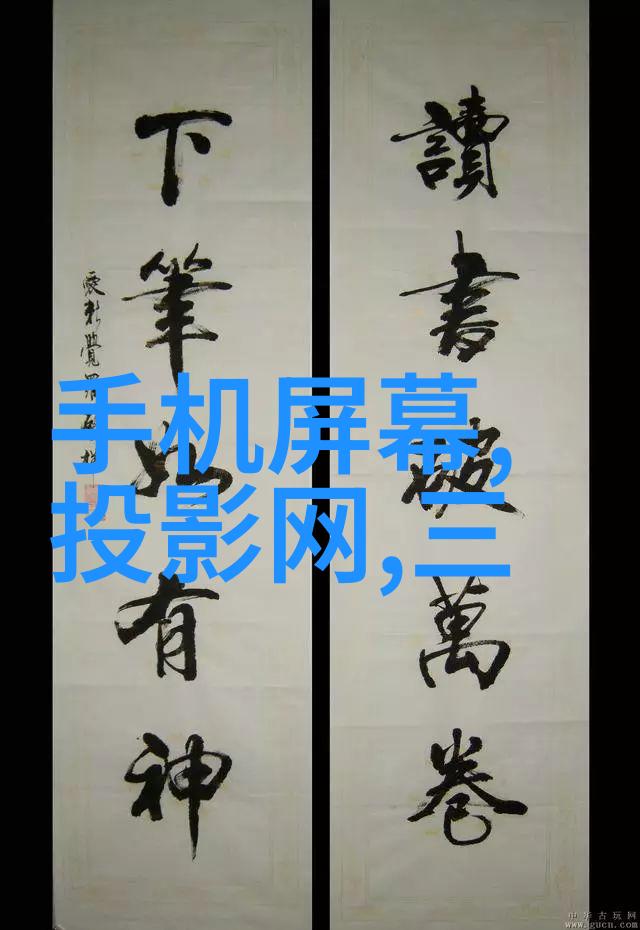 讀書破萬卷
下筆如有神
手机屏幕,
投影网,三
中华古玩网
www.gucn.com